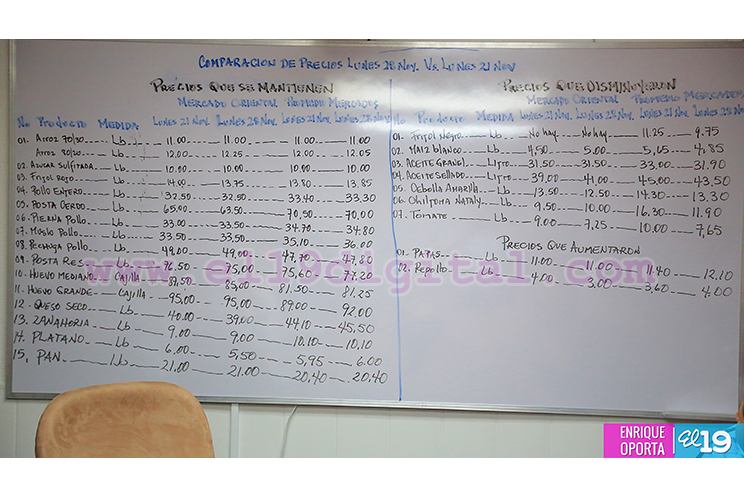 COMPARACION DE PRECIOS LUNES 28 NOV. VS. LUNES 21 NOV
PRECIOS QUE SE MANTIENEN
MERCADO ORIENTAL PROMEDIO MERCADOS
No Producto MEDIDA LUNES 21 NOV. LUNES 28 NOV. LUNES 21 NOV. LUNES 28 NOV.
01. ARROZ 70/30 Lb 11.00 11.00 11.00 11.00
ARROZ 80/20 Lb 12.00 12.25 12.00 12.05
02. AZUCAR SULFITADA Lb 10.00 10.00 10.00 10.00
03. FRIJOL ROJO Lb 14.00 13.75 13.80 13.85
04. POLLO ENTERO Lb 32.50 32.50 33.40 33.30
05. POSTA CERDO Lb 65.00 63.50 70,50 70.00
06. PIERNA POLLO Lb 33.00 33.00 34.70 34.80
07. MUSLO POLLO Lb 33.50 33.50 35,10 36.00
08. PECHUGA POLLO Lb 49.00 49,00 47.70 47.80
09. POSTA RES Lb 76,50 75,00 75,60 77.20
10. HUEVO MEDIANO CAJILLA 87,50 85.00 81.50 81.25
11. HUEVO GRANDE CAJILLA 95,00 95,00 89.00 92.00
12. QUESO SECO Lb 40.00 39,00 44.10 45,50
13. ZANAHORIA Lb 9.00 9,00 10.10 10,10
14. PLATANO Lb 6,00 5,50 5,95 6.00
15, PAN Lb 21,00 21.00 20,40 20,40
PRECIOS QUE DISMINUYERON
MERCADO ORIENTAL PROMEDIO MERCADOS
No Producto MEDIDA LUNES 21 NOV. LUNES 28 NOV. LUNES 21 NOV. LUNES 28 NOV.
01. FRIJOL NEGRO Lb No hay No hay 11.25 9.75
02. MAIZ BLANCO Lb 4,50 5.00 5,05 4,85
03. ACEITE GRANEL LITRO 31.50 31.50 33.00 31.90
04. ACEITE SELLADO LITRO 39,00 41.00 45,00 43,50
05. CEBOLLA AMARILLA Lb 13.50 12.50 14.30 13.30
06. CHILTOMA NATALY Lb 9.50 10.00 16.30 11.90
07. TOMATE Lb 9.00 7,25 10.00 7,65
PRECIOS QUE AUMENTARON
01. PAPAS Lb 11.00 11.00 11.40 12,10
02. REPOLLO Lb 4.00 3,00 3,60 4.00
www.el19digital.com
ENRIQUE OPORTA
El 19